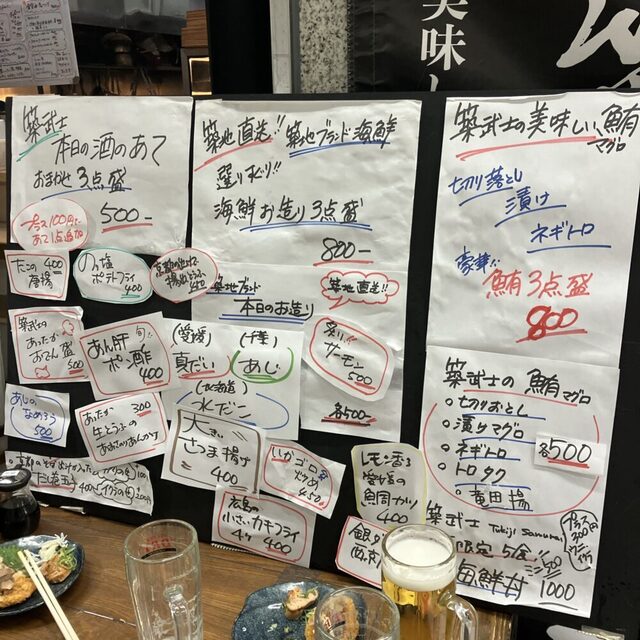 美味し
築武士
本日の酒のあて
おまかせ3点盛
500-
プラス100円で
あて1点追加
たこの 400
唐揚
のり塩
ポテトフライ
400
築武士の
あったか
おでん盛
500
あん肝 旬!!
ポン酢
400
あじの
なめろう
500
あったか 300
生とうふの
築地直送!! 築地ブランド海鮮
選りすぐり!!
海鮮お造り3点盛
800-
築地ブランド
本日のお造り
築地直送!!
炙り
サーモン
500
各500-
(愛媛)
真だい
(千葉)
あじ
(北海道)
水だこ
大きな
さつま揚げ
400
いかゴロ
450
広島の
小さいカキフライ
4ケ 400
レモン香る
400
築武士の美味しい鮪
マグロ
切り落とし
漬け
ネギトロ
豪華!!
鮪3点盛
800
築武士の鮪マグロ
切りおとし
漬けマグロ
ネギトロ
トロタク
竜田揚
各500
築武士 Tukiji Samurai
限定5食!!
海鮮丼 1000